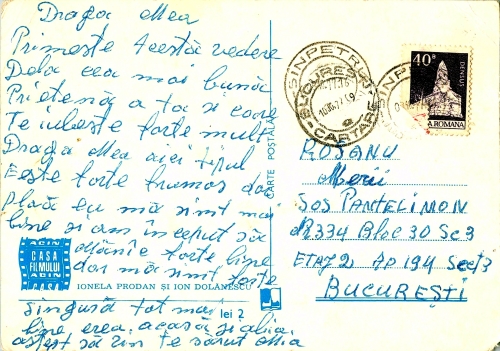 Draga Mea
Primește Această vedere
Dela cea mai bună
Prietenă a ta și care
Te iubește forte mult
Draga Mea aici timpul
Este forte frumos dar
plouă eu mă simt mai
bine și am început să
mănînc forte bine
dar mă simt forte
singură tot mai
bine era acasă și abia
aștept să vin te sărut Mia
ACIN
CASA
FILMULUI
ACIN
CASA
IONELA PRODAN ȘI ION DOLĂNESCU
lei 2
CARTE POSTALĂ
SINPETRU
BUCUREȘTI
CARTARE
SINPETRU
40B
DENSUȘ
A.ROMANA
ROȘANU
Merii
ȘOS PANTELIMON
NR 334 Bloc 30 Sc 3
ETAJ 2 AP 194 Sect 3
BUCUREȘTI